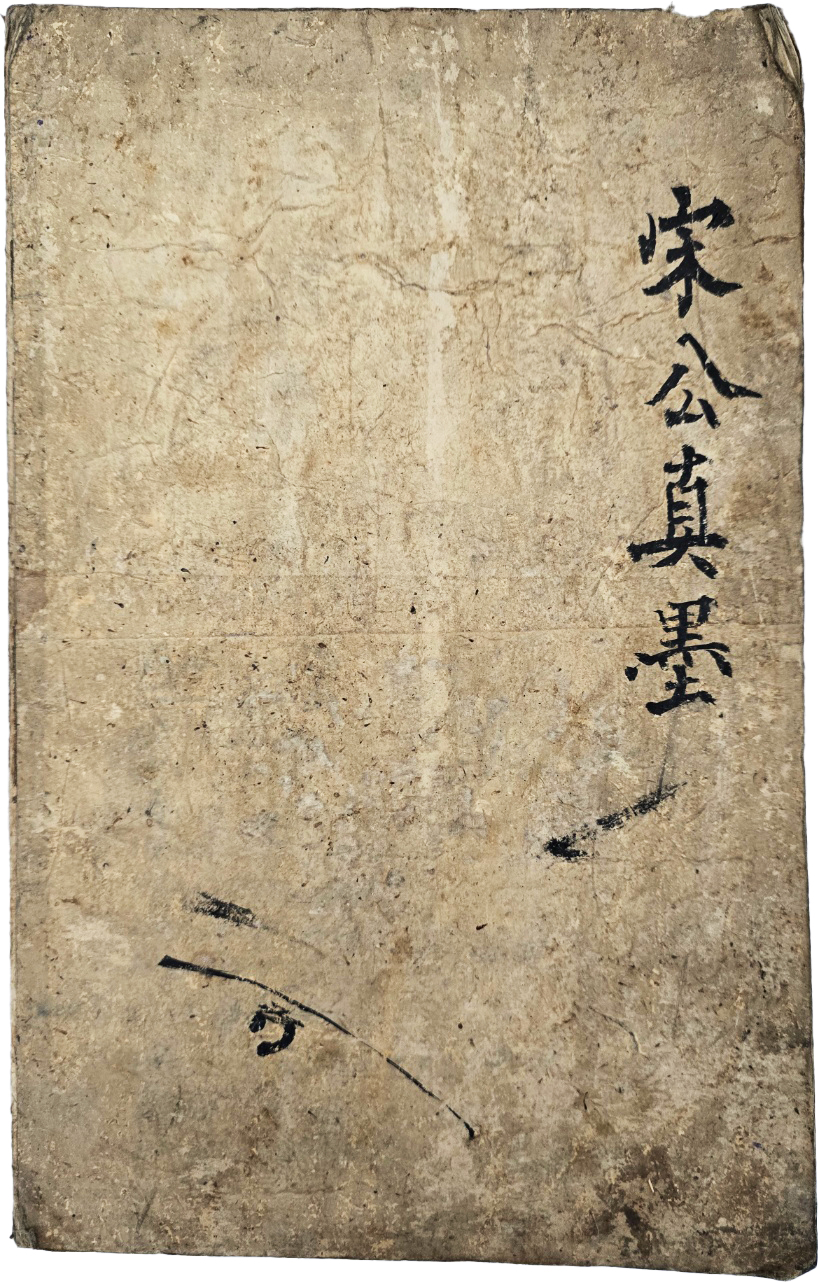 宋公真墨